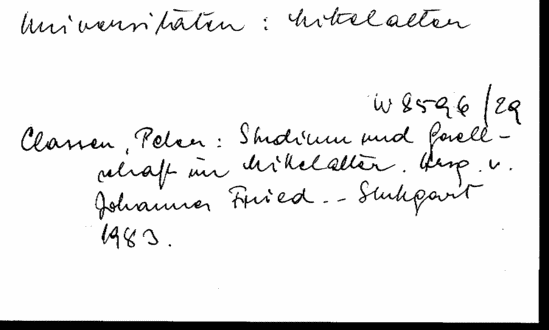 Universitäten : Mittelalter
W 8596/29
Classen, Peter : Studium und Gesell-
schaft im Mittelalter. Hrsg. v.
Johannes Fried. -- Stuttgart
1983.